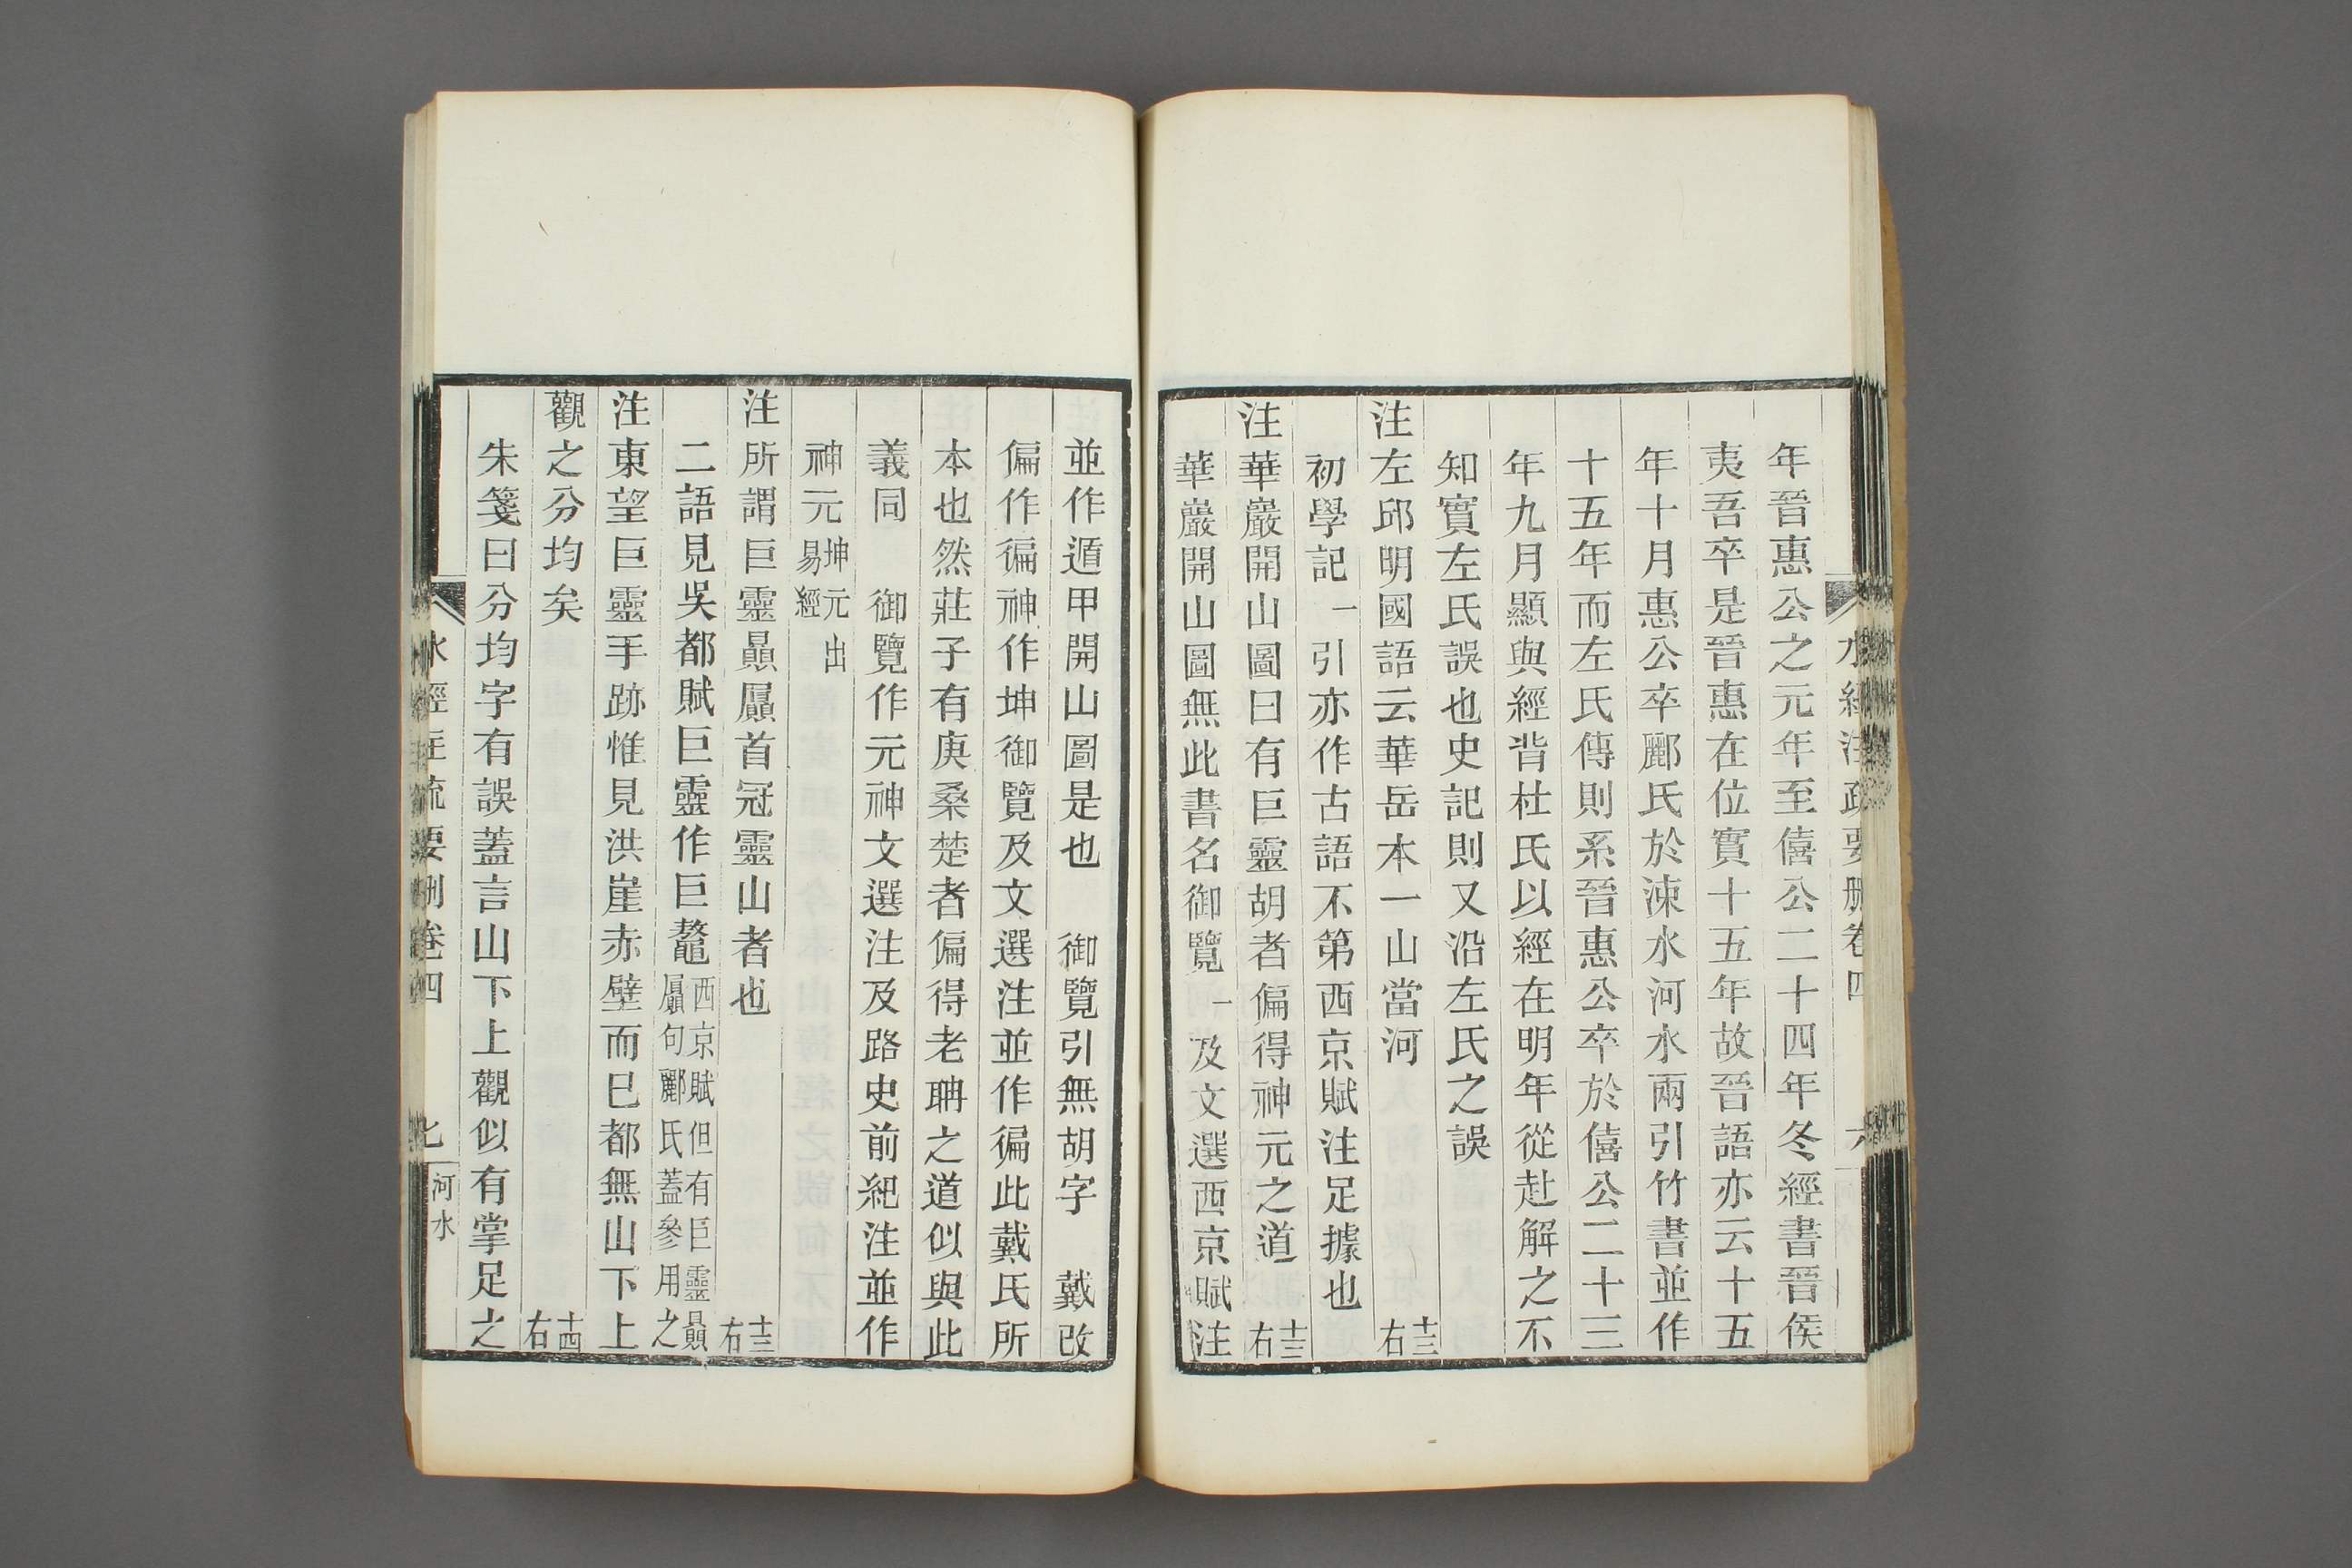 水經注疏要刪卷四 六
年晉惠公之元年至僖公二十四年冬經書晉侯
夷吾卒是晉惠在位實十五年故晉語亦云十五
年十月惠公卒酈氏於涑水河水兩引竹書並作
十五年而左氏傳則系晉惠公卒於僖公二十三
年九月顯與經背杜氏以經在明年從赴解之不
知實左氏誤也史記則又沿左氏之誤
注左邱明國語云華岳本一山當河 十三右
初學記一引亦作古語不第西京賦注足據也
注華巖開山圖曰有巨靈胡者偏得神元之道 十三右
華巖開山圖無此書名御覽一及文選西京賦注
並作遁甲開山圖是也 御覽引無胡字 戴改
偏作徧神作坤御覽及文選注並作徧此戴氏所
本也然莊子有庚桑楚者偏得老聃之道似與此
義同 御覽作元神文選注及路史前紀注並作
神元坤元出易經
注所謂巨靈贔屭首冠靈山者也 十三右
二語見吳都賦巨靈作巨鼇西京賦但有巨靈贔屭句酈氏蓋參用之
注東望巨靈手跡惟見洪崖赤壁而已都無山下上
觀之分均矣 十四右
朱箋曰分均字有誤蓋言山下上觀似有掌足之
水經注疏要刪卷四 七 河水